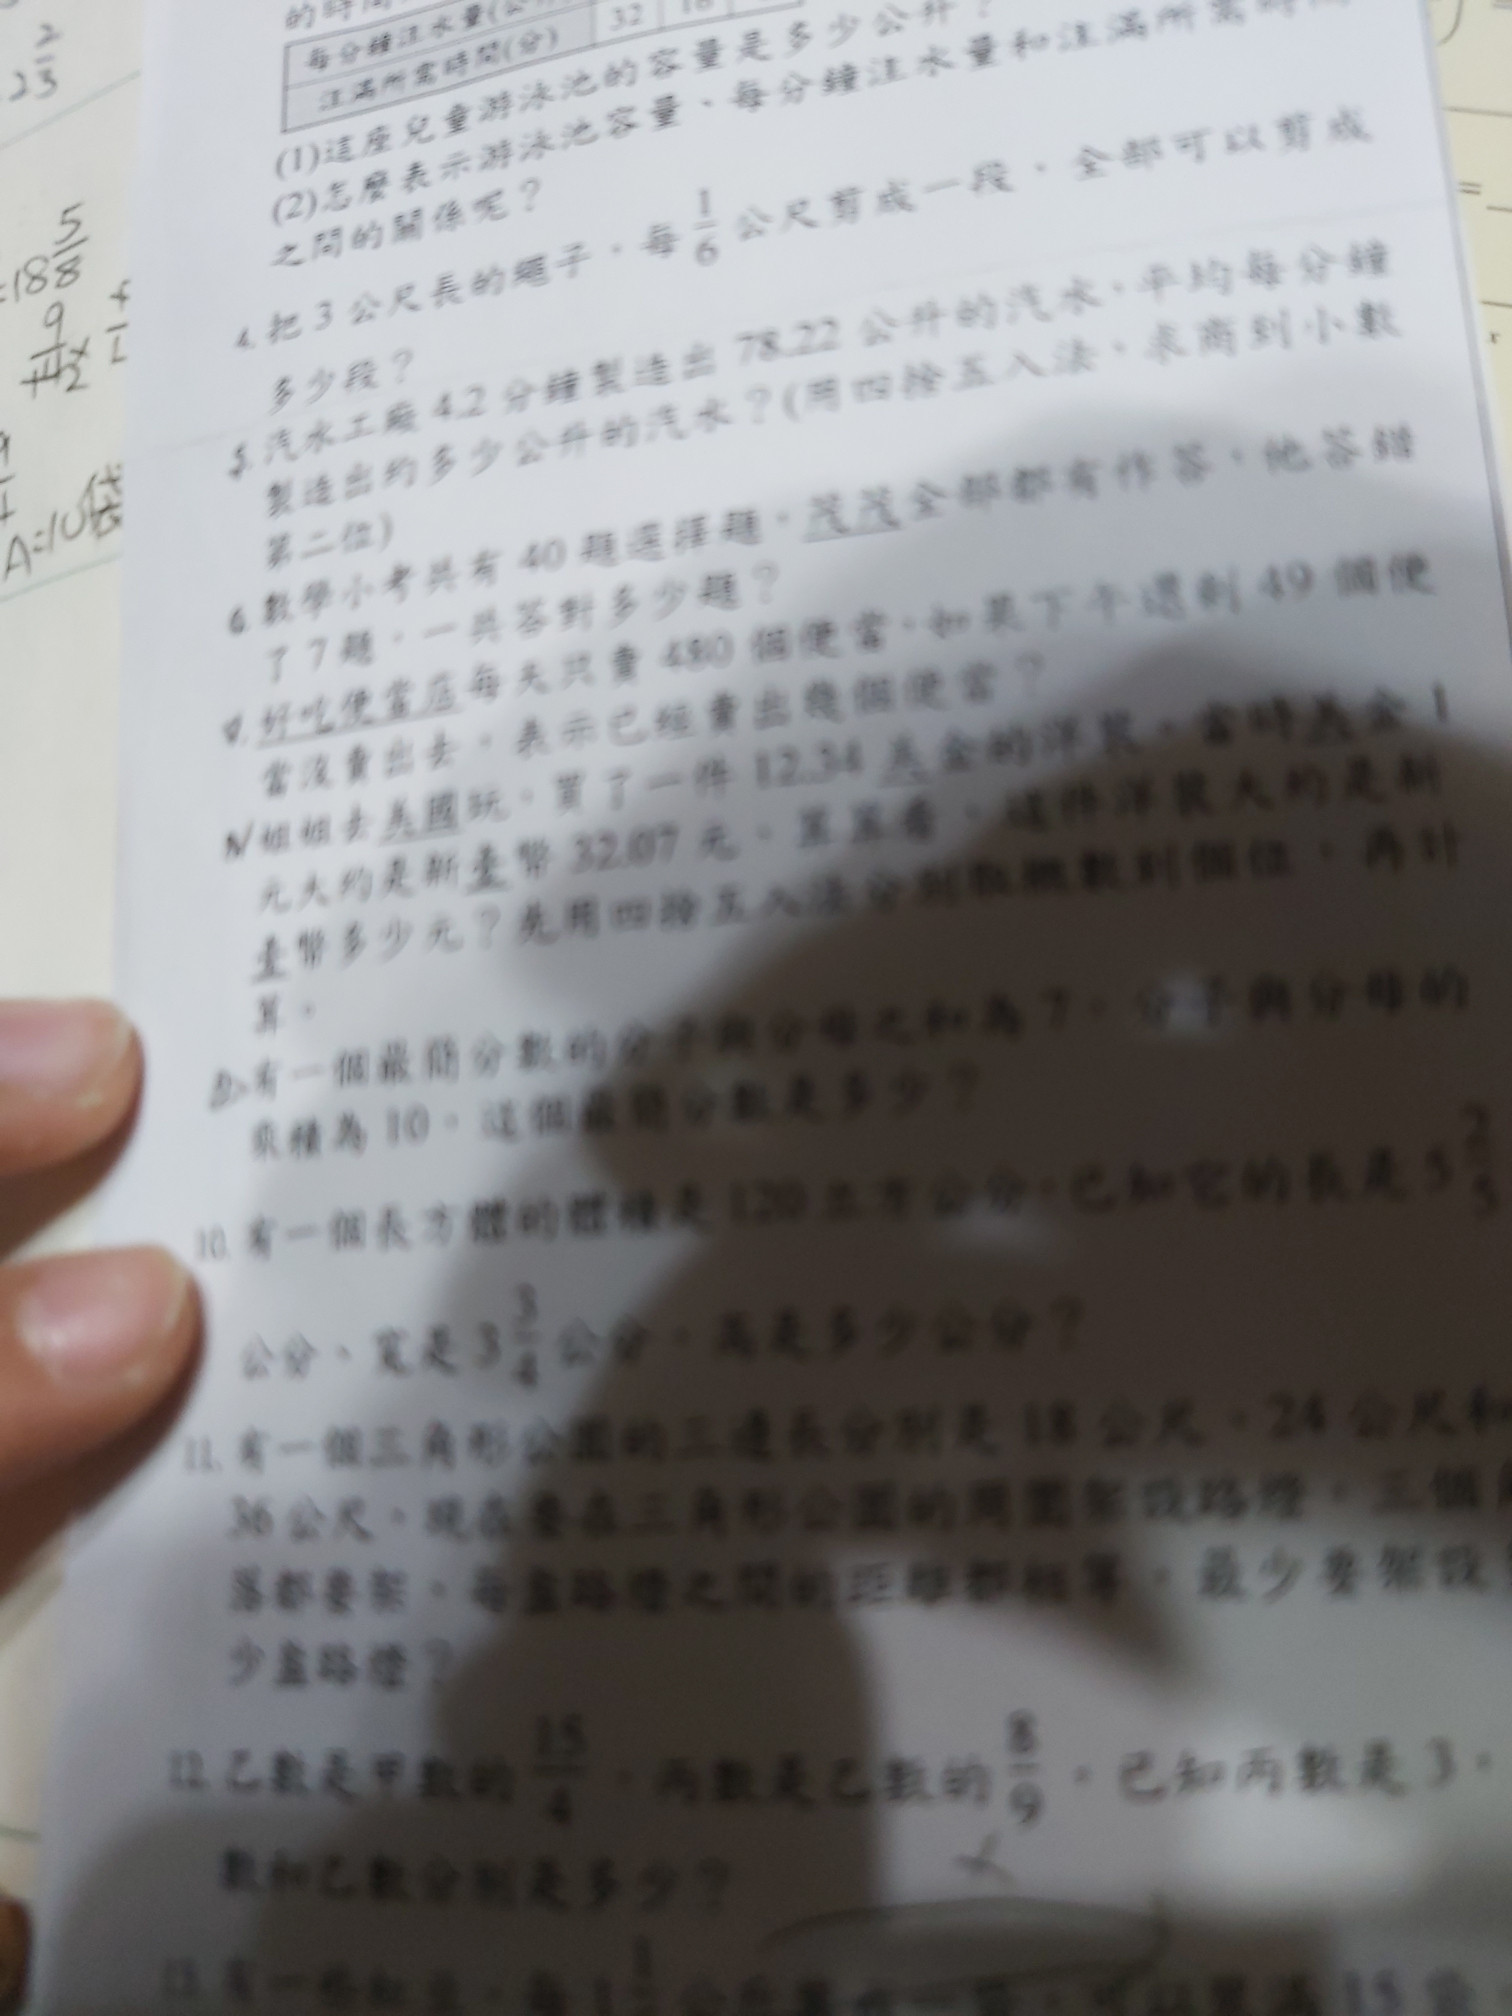 的時間
每分鐘注水量(公升) 32 16
注滿所需時間(分)
(1)這座兒童游泳池的容量是多少公升？
(2)怎麼表示游泳池容量、每分鐘注水量和注滿所需時間
之間的關係呢？
4. 把 3 公尺長的繩子，每 1/6 公尺剪成一段，全部可以剪成
多少段？
5. 汽水工廠 4.2 分鐘製造出 78.22 公升的汽水，平均每分鐘
製造出約多少公升的汽水？(用四捨五入法，求商到小數
第二位)
6. 數學小考共有 40 題選擇題，茂茂全部都有作答，他答錯
了 7 題，一共答對多少題？
好吃便當店每天只賣 480 個便當，如果下午還剩 49 個便
當沒賣出去，表示已經賣出幾個便當？
姐姐去美國玩，買了一件 12.34 美金的洋裝，當時美金 1
元大約是新臺幣 32.07 元，算算看，這件洋裝大約是新
臺幣多少元？先用四捨五入法分別取概數到個位，再計
算。
有一個最簡分數的分子與分母之和為 7，分子與分母的
乘積為 10，這個最簡分數是多少？
10. 有一個長方體的體積是 120 立方公分，已知它的長是 5 2/5
公分、寬是 3 3/4 公分，高是多少公分？
11. 有一個三角形公園的三邊長分別是 18 公尺、24 公尺和
36 公尺，現在要在三角形公園的周圍架設路燈，三個
落都要架，每盞路燈之間的距離都相等，最少要架設
少盞路燈？
12. 乙數是甲數的 15/4，丙數是乙數的 8/9，已知丙數是 3，
數和乙數分別是多少？
13. 有一
2 2/3
=18 5/8
A=10袋